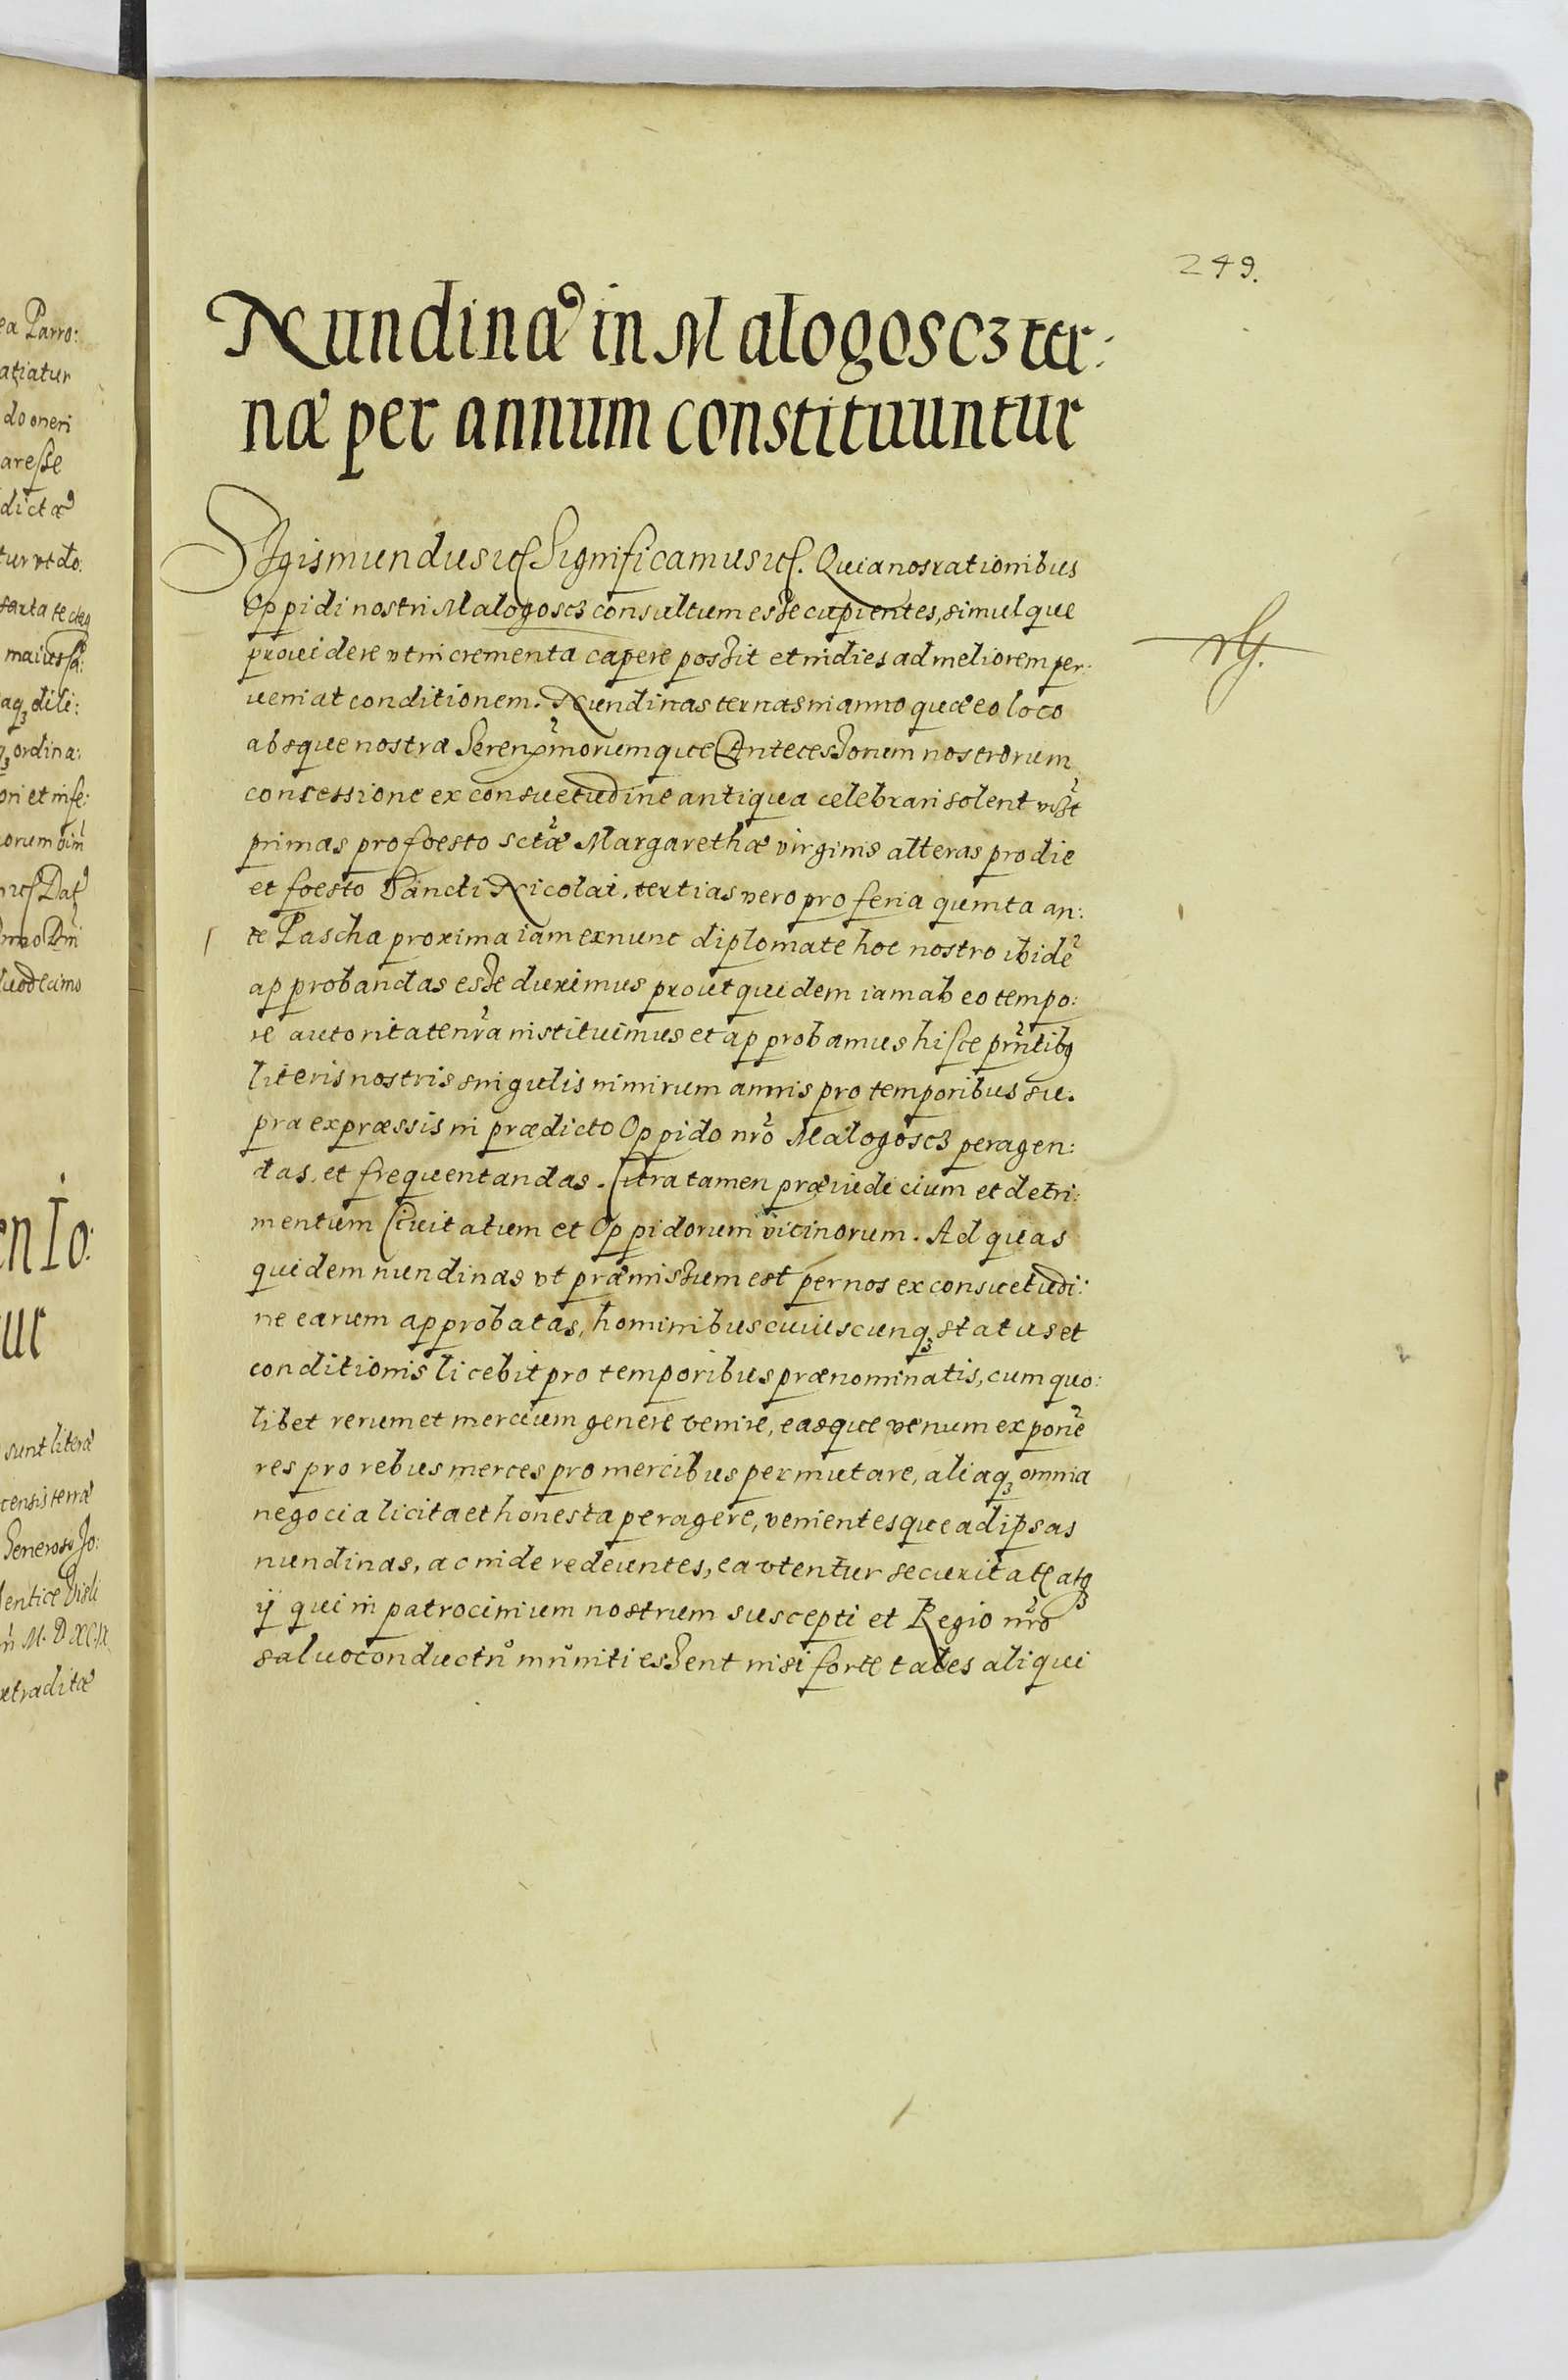 249.
Nundinæ in Malogoscz ter:
næ per annum constituuntur
Sigismundus etc Significamus etc. Quia nos rationibus
Oppidi nostri Malogoscz consultum esse cupientes, simulque
prouidere vt incrementa capere possit et indies ad meliorem per:
ueniat conditionem. Nundinas ternas in anno quæ eo loco
absque nostra Serenmorumque Antecessorum nostrorum
concessione ex consuetudine antiqua celebrari solent vizt
primas pro foesto sctæ Margarethæ virginis alteras pro die
et foesto Sancti Nicolai, tertias vero pro feria quinta an:
te Pascha proxima iam exnunc diplomate hoc nostro ibidē
approbandas esse duximus prout quidem iam ab eo tempo:
re autoritate nra instituimus et approbamus hisce prntibq
literis nostris singulis nimirum annis pro temporibus su:
pra expræssis in prædicto Oppido nro Malogoscz peragen:
das, et frequentandas. Citra tamen præiudicium et detri:
mentum Ciuitatum et Oppidorum vicinorum. Ad quas
quidem nundinas vt præmissum est per nos ex consuetudi:
ne earum approbatas, hominibus cuiuscunqꝫ status et
conditionis licebit pro temporibus prænominatis, cum quo:
libet rerum et mercium genere venire, easque venum exponē
res pro rebus merces pro mercibus permutare, aliaqꝫ omnia
negocia licita et honesta peragere, venientesque ad ipsas
nundinas, ac inde redeuntes, ea vtentur securitate atqꝫ
ij qui in patrocinium nostrum suscepti et Regio nro
saluoconductu muniti essent nisi forte tales aliqui
ea Parro:
atiatur
do oneri
aresse
dictæ
tur vt do:
sarta tecteq
aqꝫ dili:
qꝫ ordina:
ori et infe:
Dat
duodecimo
en Io:
ur
sunt literæ
censis terræ
Generoso Jo:
M. D XCIX
extraditæ